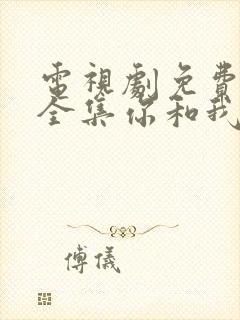 電視劇免費
全集你和我
傅儀